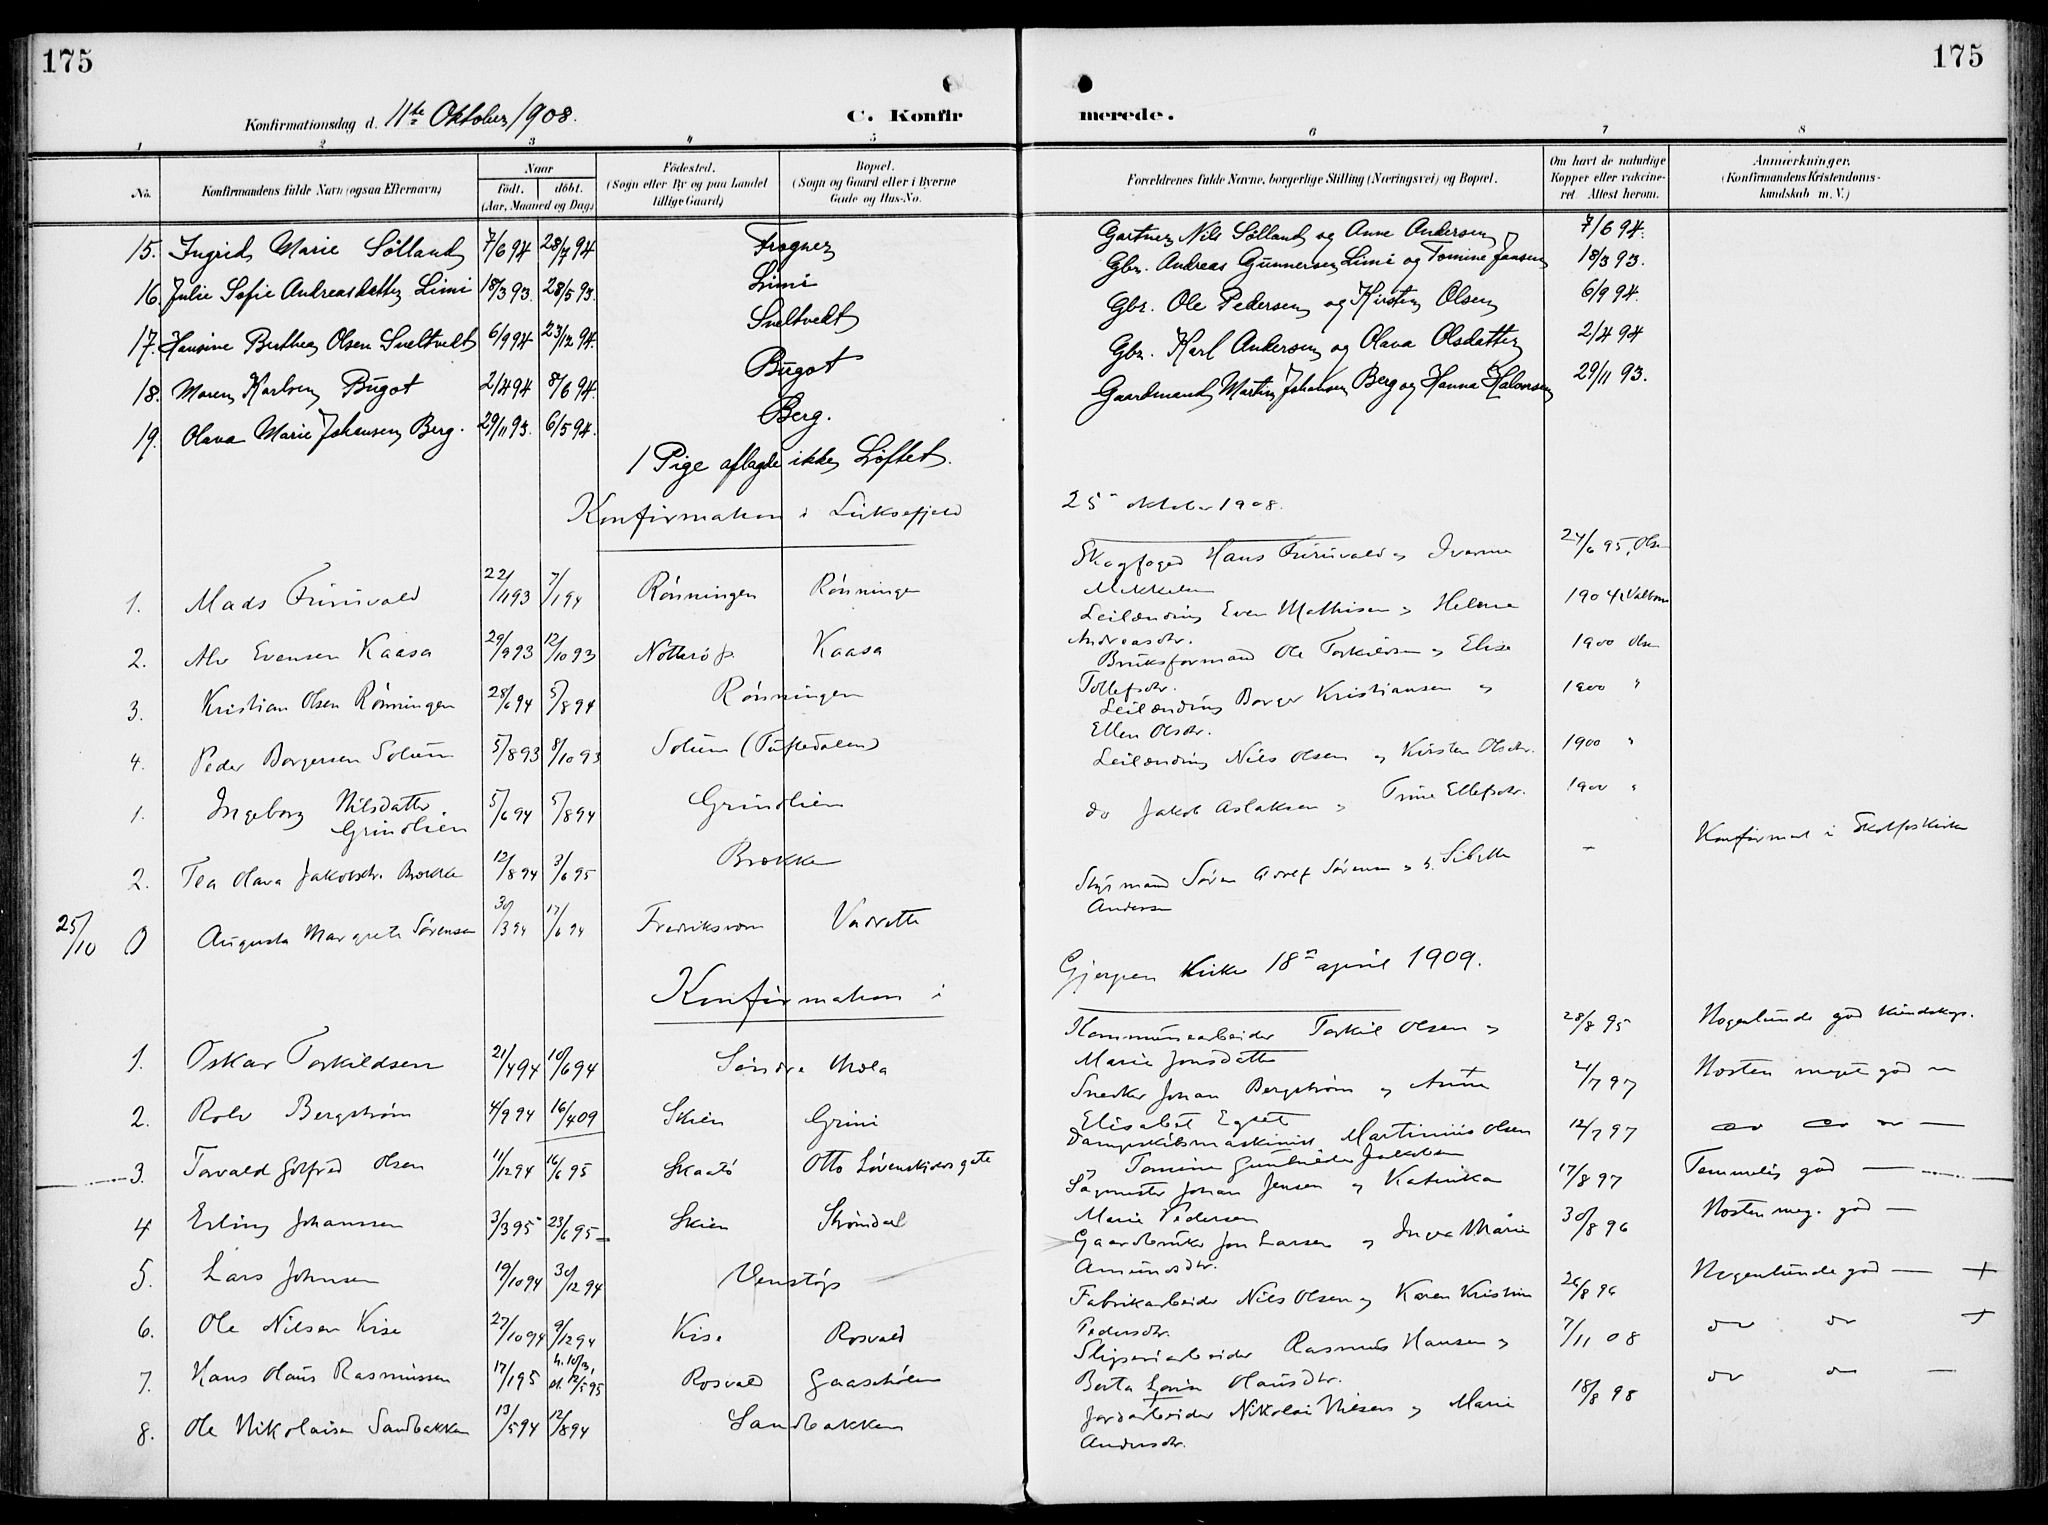 175
175
Konfirmationsdag d. 11te Oktober 1908.
C. Konfirmerede.
1 2 3 4 5 6 7 8
No.
Konfirmandens fulde Navn (ogsaa Efternavn)
Naar
født. døbt.
(Aar, Maaned og Dag)
Fødested.
(Sogn eller By og paa Landet
tillige Gaard)
Bopæl.
(Sogn og Gaard eller i Byerne
Gade og Hus-No.
Forældrenes fulde Navne, borgerlige Stilling (Næringsvei) og Bopæl.
Om havt de naturlige
Kopper eller vakcine-
ret. Attest herom.
Anmærkninger.
(Konfirmandens Kristendoms-
kundskab m. V.)
15. Ingrid Marie Sølland 7/6 94 28/7 94 Frogner Gartner Nils Sølland og Anne Andersen 7/6 94.
16. Julie Sofie Andreasdatter Limi 18/3 93. 28/5 93. Limi Gbr. Andreas Gunnersen Limi og Tomine Jansen 18/3 93.
17. Hansine Berthea Olsen Sneltvedt 6/9 94 23/12 94. Sneltvedt Gbr. Ole Pedersen og Kirsten Olsen 6/9 94.
18. Maren Karlsen Bugot 2/4 94 8/6 94. Bugot Gbr. Karl Andersen og Olava Olsdatter 2/4 94
19. Olava Marie Johansen Berg. 29/11 93. 6/5 94. Berg. Gaardmand Martin Johansen Berg og Hanna Halvorsen 29/11 93.
1 Pige aflagde ikke Løftet.
Konfirmation i Luksefjeld 25de oktober 1908.
1. Mads Furuvald 22/11 93 7/1 94 Rønningen Rønningen Skogfoged Hans Furuvald og Ivarine 24/6 95, Olsen
Mikkelsen
2. Alv Evensen Kaasa 29/9 93 12/10 93 Kaasa Leilænding Even Mathisen og Helene 1904
Andreasdtr.
3. Kristian Olsen Rønningen 28/6 94 5/8 94 Rønningen Bruksformand Ole Torkildsen og Elise 1900 Olsen
Tollefsdtr.
4. Peder Borgersen Solum 5/8 93 8/10 93 Solum (Tuftedalen) Leilænding Borger Kristiansen og 1900 "
Ellen Olsdtr.
1. Ingeborg Nilsdatter 5/6 94 5/8 94 Grindlien Leilænding Nils Olsen og Kirsten Olsdtr. 1900 "
Grindlien
2. Tea Olava Jakobsdtr. Brække 12/8 94 3/6 95 Brække do Jakob Aslaksen og Trine Ellefsdtr. 1900 "
25/10 0 Augusta Margrete Sørensen 30/3 94 17/6 94 Fredriksvern Vadrette Styrmand Søren Adolf Sørensen og h. Sibylle – Konfirmert i Skotfos kirke
Andersen
Konfirmation i Gjerpen Kirke 18de april 1909.
1. Oskar Torkildsen 21/4 94 10/6 94 Søndre Mæla Kommunearbeider Torkil Olsen og 28/8 95 Nogenlunde god kundskap.
Marie Jonsdatter
2. Rolv Bergstrøm 4/9 94 16/4 09 Skien Grini Snedker Johan Bergstrøm og Anne 21/7 97 Nesten meget god —
Elisabet Egset
3. Torvald Gotfred Olsen 11/12 94 16/6 95 Skaatø Otto Løvenskiolds gate Dampskibsmaskinist Martinius Olsen 12/7 97 do do do —
og Tomine Gunhilde Jakobsen
4 Erling Johanssen 3/3 95 23/6 95 Skien Strømdal Sagmester Johan Jensen og Katinka 17/8 97 Temmelig god —
Marie Pedersen
5. Lars Johnsen 19/10 94 30/12 94 Venstøp Gaardbruker Jon Larsen og Inga Marie 30/8 96 Nesten meg. god —
Amundsdtr.
6. Ole Nilsen Kise 27/10 94 9/12 94 Kise Rosvald Fabrikarbeider Nils Olsen og Karen Kristine 26/8 96 Nogenlunde god — +
Pedersdtr.
7. Hans Olaus Rasmussen 17/1 95 h. 10/3, st. 12/5 95 Rosvald Gaaseholmen Sliperiarbeider Rasmus Hansen og 7/11 08 do do +
Berta Lovise Olausdtr.
8. Ole Nikolaisen Sandbakken 13/5 94 12/8 94 Sandbakken Jordarbeider Nikolai Nilsen og Marie 18/8 98 do do —
Andersdtr.